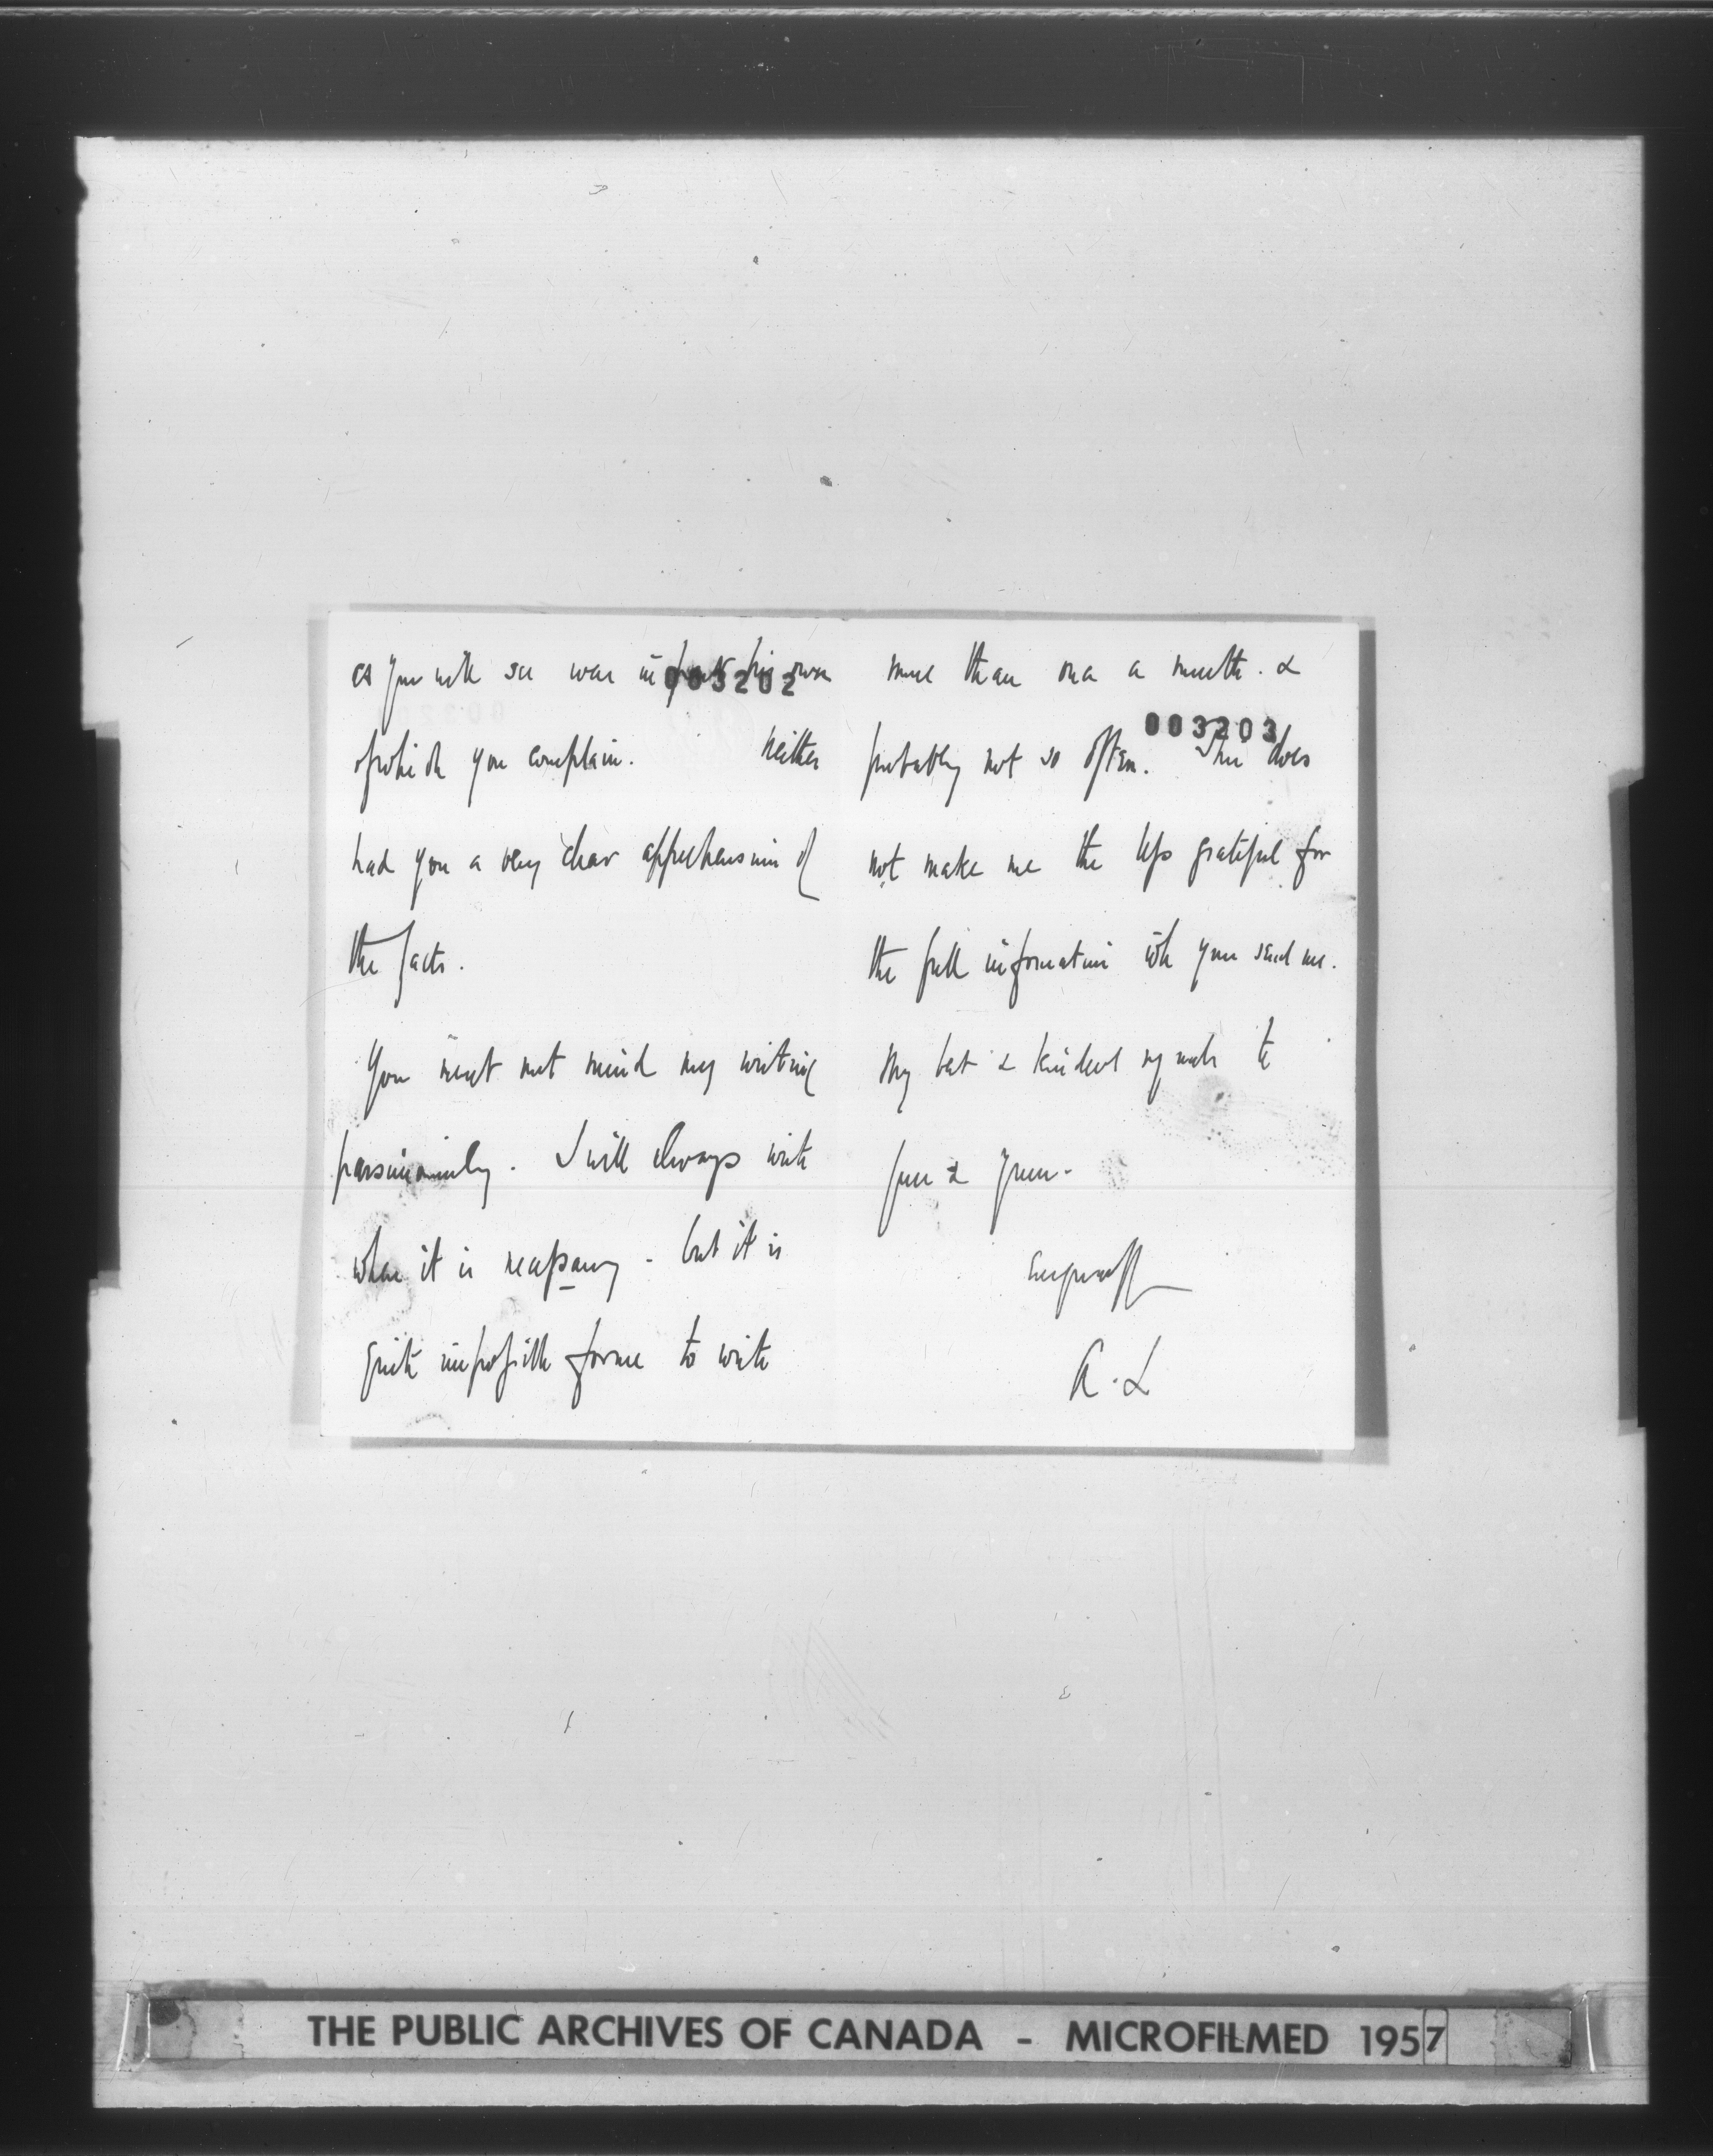 as you will see were in fact his own
003202
of which you complain. Neither
had you a very clear apprehension of
the facts.
You must not mind my writing
parsimoniously. I will always write
when it is necessary - but it is
quite impossible for me to write
more than once a month. &
003203
probably not so often. This does
not make me the less grateful for
the full information wh you send me.
My best & kindest regards to
you & yours.
A. L
THE PUBLIC ARCHIVES OF CANADA - MICROFILMED 1957